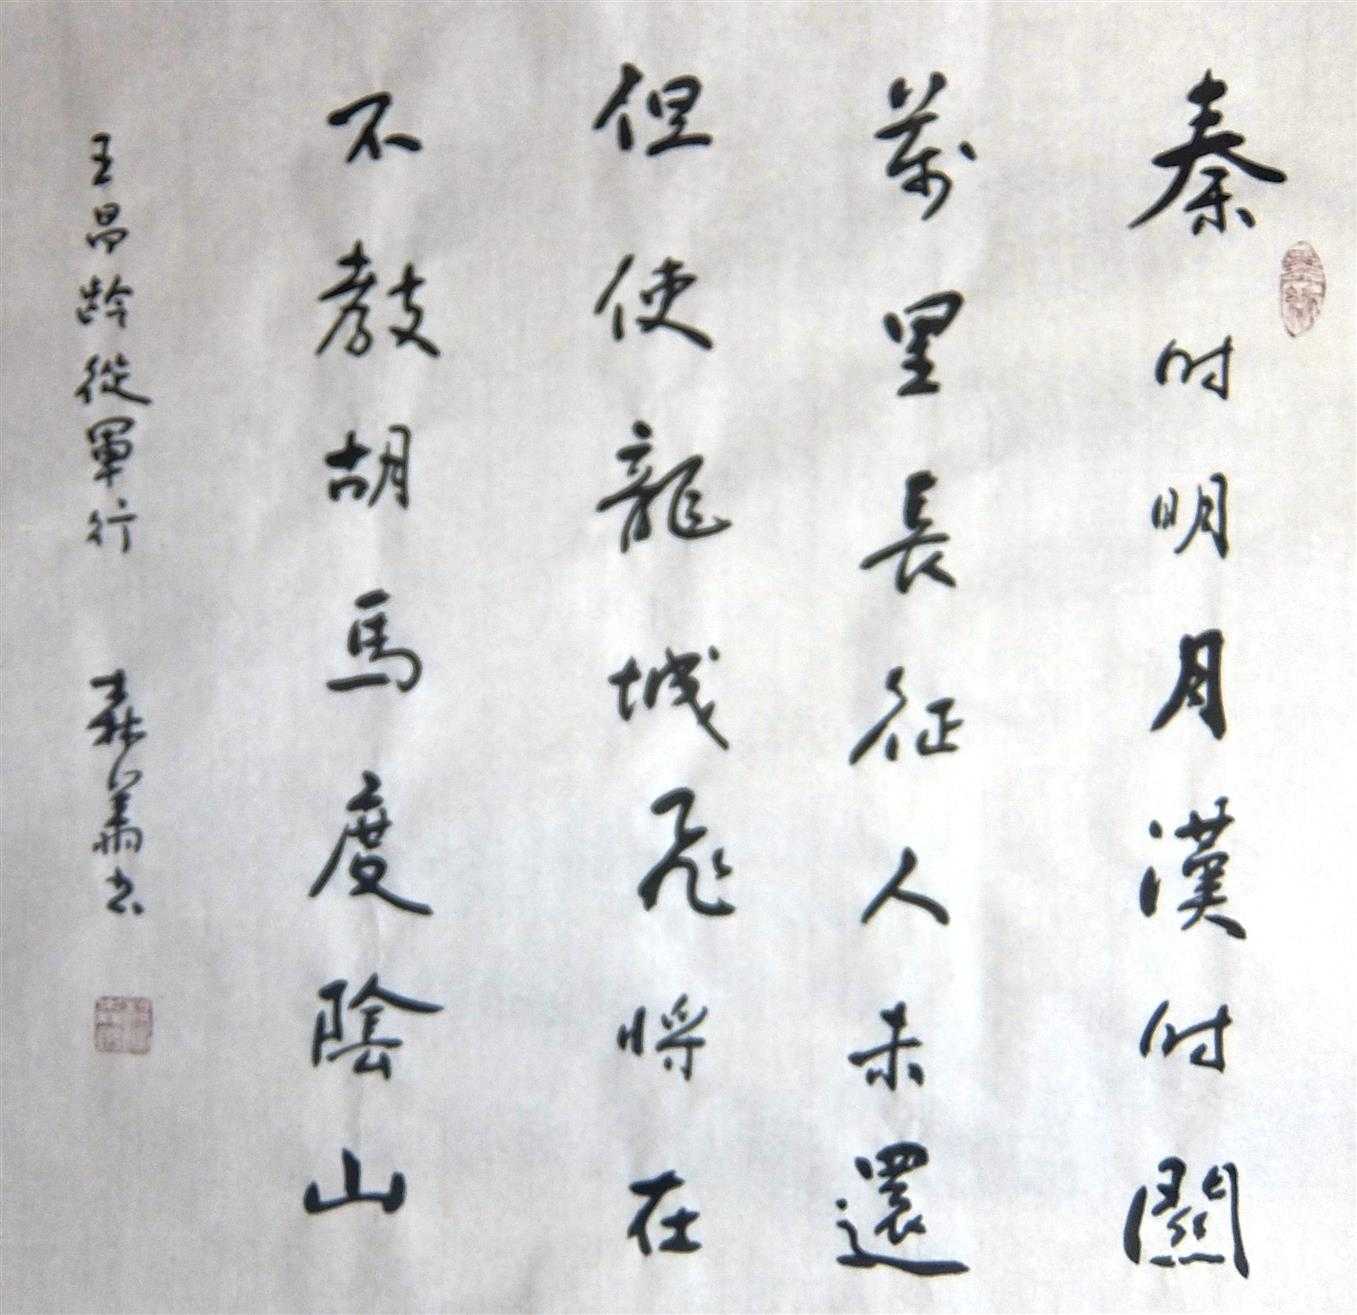 秦时明月漢时關
萬里長征人未還
但使龍城飛将在
不教胡馬度陰山
王昌龄從軍行
书